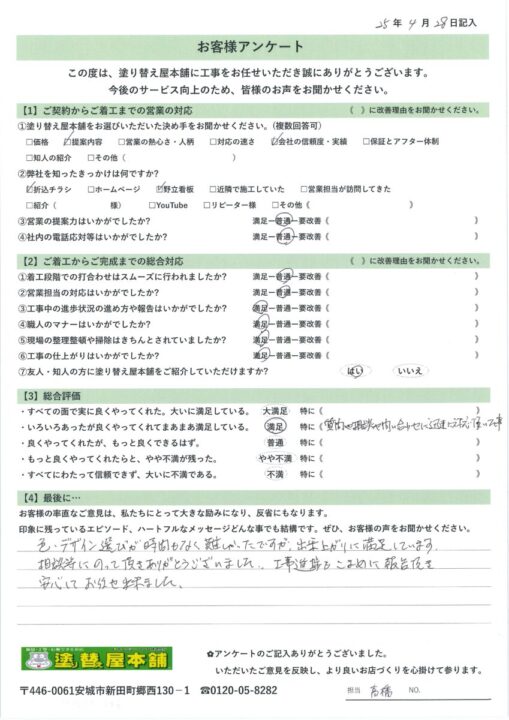 25年4月28日記入
お客様アンケート
この度は、塗り替え屋本舗に工事をお任せいただき誠にありがとうございます。
今後のサービス向上のため、皆様のお声をお聞かせください。
【1】ご契約からご着工までの営業の対応 《 》に改善理由をお聞かせください。
①塗り替え屋本舗をお選びいただいた決め手をお聞かせください。(複数回答可)
□価格 ☑提案内容 □営業の熱心さ・人柄 □対応の速さ ☑会社の信頼度・実績 □保証とアフター体制
□知人の紹介 □その他( )
②弊社を知ったきっかけは何ですか?
☑折込チラシ □ホームページ ☑野立看板 □近隣で施工していた □営業担当が訪問してきた
□紹介( 様) □YouTube □リピーター様 □その他《 》
③営業の提案力はいかがでしたか? 満足ー普通ー要改善《 》
④社内の電話応対等はいかがでしたか? 満足ー普通ー要改善《 》
【2】ご着工からご完成までの総合対応 《 》に改善理由をお聞かせください。
①着工段階での打合わせはスムーズに行われましたか? 満足ー普通ー要改善《 》
②営業担当の対応はいかがでしたか? 満足ー普通ー要改善《 》
③工事中の進歩状況の進め方や報告はいかがでしたか? 満足ー普通ー要改善《 》
④職人のマナーはいかがでしたか? 満足ー普通ー要改善《 》
⑤現場の整理整頓や掃除はきちんとされていましたか? 満足ー普通ー要改善《 》
⑥工事の仕上がりはいかがでしたか? 満足ー普通ー要改善《 》
⑦友人・知人の方に塗り替え屋本舗をご紹介していただけますか? はい いいえ
【3】総合評価
・すべての面で実に良くやってくれた。大いに満足している。 大満足 特に《 》
・いろいろあったが良くやってくれてまあまあ満足している。 満足 特に《
・良くやってくれたが、もっと良くできるはず。 普通 特に《 》
・もっと良くやってくれたらと、やや不満が残った。 やや不満 特に《 》
・すべてにわたって信頼できず、大いに不満である。 不満 特に《 》
【4】最後に…
お客様の率直なご意見は、私たちにとって大きな励みになり、反省にもなります。
印象に残っているエピソード、ハートフルなメッセージどんな事でも結構です。ぜひ、お客様の声をお聞かせください。
色・デザイン選びが時間もなく難しかったですが、出来上がりに満足しています。
相談等にのって頂きありがとうございました。工事進捗もこまめに報告頂き
安心してお任せ出来ました。
塗替え屋本舗
✿アンケートのご記入ありがとうございました。
いただいたご意見を反映し、より良いお店づくりを心掛けて参ります。
〒446-0061安城市新田町郷西130−1 ☎0120-05-8282
担当 高橋 NO.